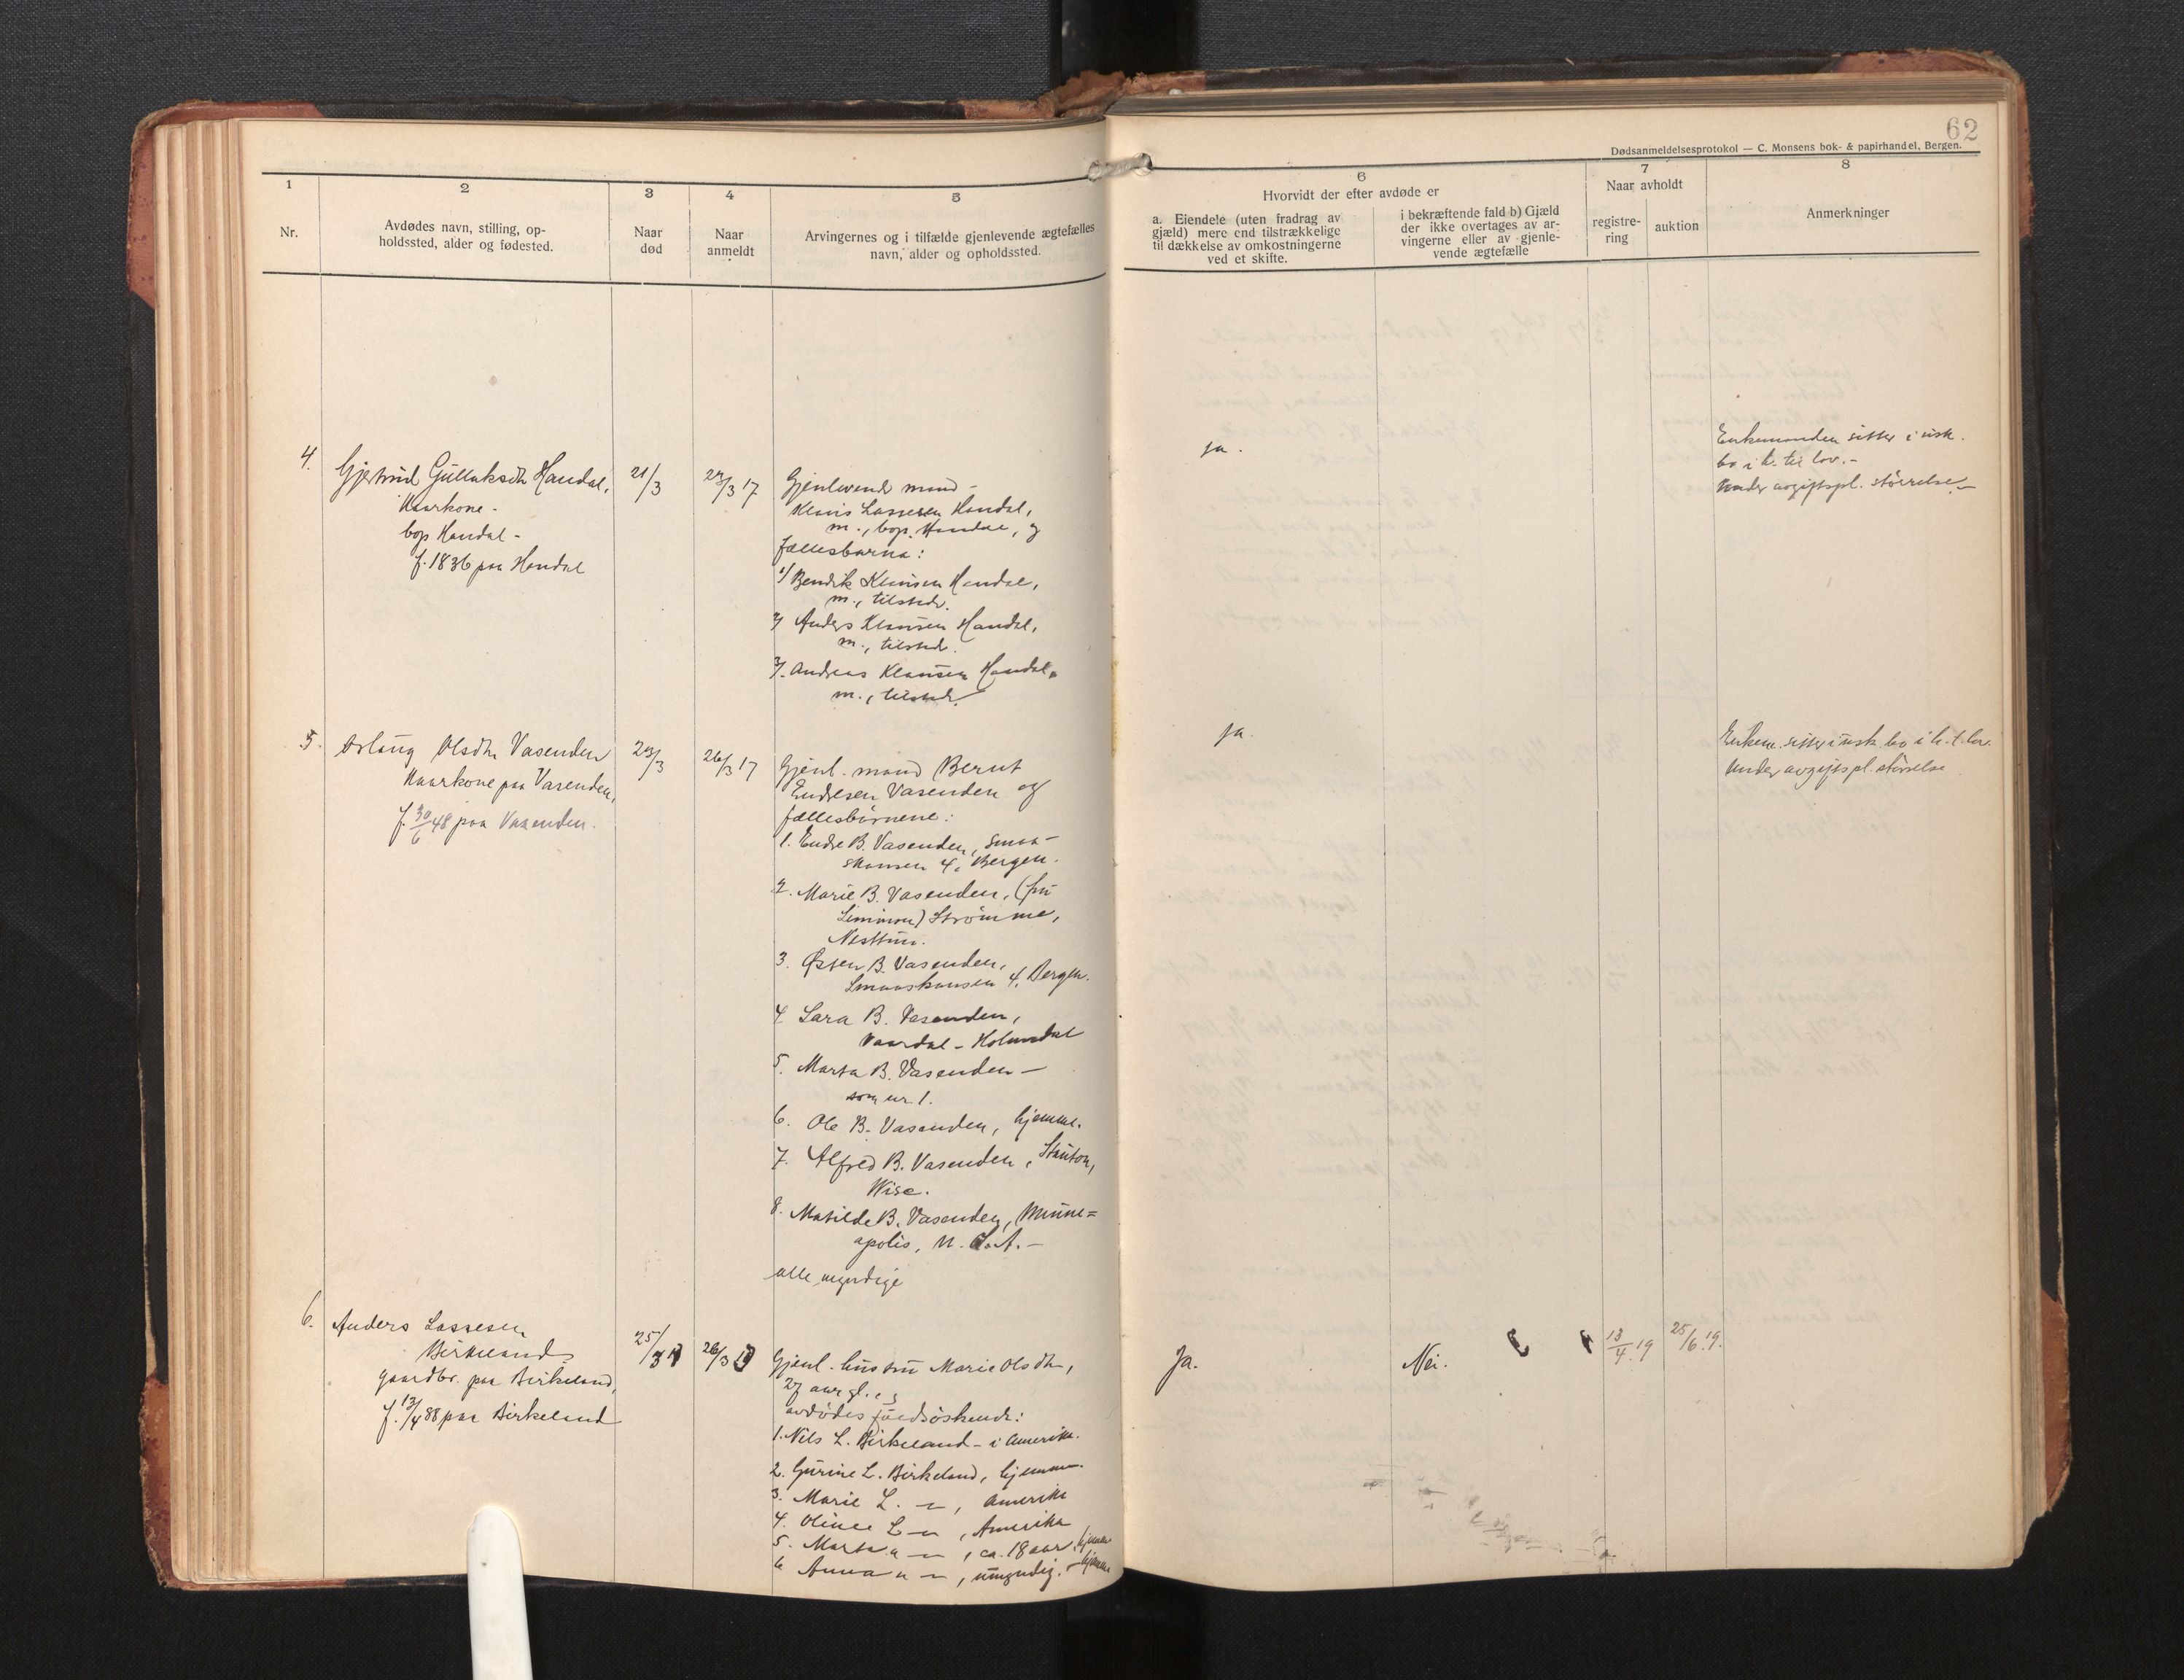 62
Dødsanmeldelsesprotokol — C. Monsens bok- & papirhandel, Bergen.
1
2
3
4
5
6
7
8
Nr.
Avdødes navn, stilling, op-
holdssted, alder og fødested.
Naar
død
Naar
anmeldt
Arvingernes og i tilfælde gjenlevende ægtefælles
navn, alder og opholdssted.
Hvorvidt der efter avdøde er
a. Eiendele (uten fradrag av
gjæld) mere end tilstrækkelige
til dækkelse av omkostningerne
ved et skifte.
i bekræftende fald b) Gjæld
der ikke overtages av ar-
vingerne eller av gjenle-
vende ægtefælle
Naar avholdt
registre-
ring
auktion
Anmerkninger
4.
Gjertrud Gullaksdtr Handal,
Kaarkone -
bop Handal -
f. 1836 paa Handal
21/3
23/3 17
Gjenlevende mand -
Klaus Lassesen Handal,
m., bop. Handal, og
fællesbarna:
1/ Bendik Klausen Handal,
m., tilstede.
2/ Anders Klausen Handal,
m., tilstede.
3/. Andreas Klausen Handal,
m., tilstede.
ja.
Enkemanden sitter i usk.
bo i h. til lov. -
Under avgiftspl. størrelse -
5.
Olsdtr Vasenden
Kaarkone paa Vasenden,
f. 30/6 48 paa Vasenden.
26/3 17
Gjenl. mand Bernt
Endresen Vasenden og
fællesbørnene:
1. Endre B. Vasenden, Smaa-
skansen 4, Bergen.
2. Marie B. Vasenden, (fru
) Strömme,
Nesttun.
3. Østen B. Vasenden,
Smaaskansen 4, Bergen.
4. Lara B. Vasenden,
Vaardal - Holmedal
5. Marta B. Vasenden -
som nr. 1.
6. Ole B. Vasenden, hjemme.
7. Alfred B. Vasenden, Stauton,
Wisc.
8. Matilde B. Vasenden, Minne=
apolis, U.S.A. -
alle myndige
ja.
Enkem. sitter i usk. bo i h. t. lov.
Under avgiftspl. størrelse
6.
Anders Lassesen
Birkeland
gaardbr. paa Birkeland,
f. 13/4 88 paa Birkeland
25/3
26/3
Gjenl. hustru Marie Olsdtr,
27 aar gl. og
avdødes fuldsöskende:
1. Nils L. Birkeland - i Amerika.
2. Gurine L. Birkeland, hjemme.
3. Marie L. -"-, Amerika
4. Oline L -"-, Amerika
5. Marta " -"-, ca. 18 aar, hjemme
6 Anna " -"-, umyndig. - hjemme
Ja.
Nei.
13/4.19
25/6.19.